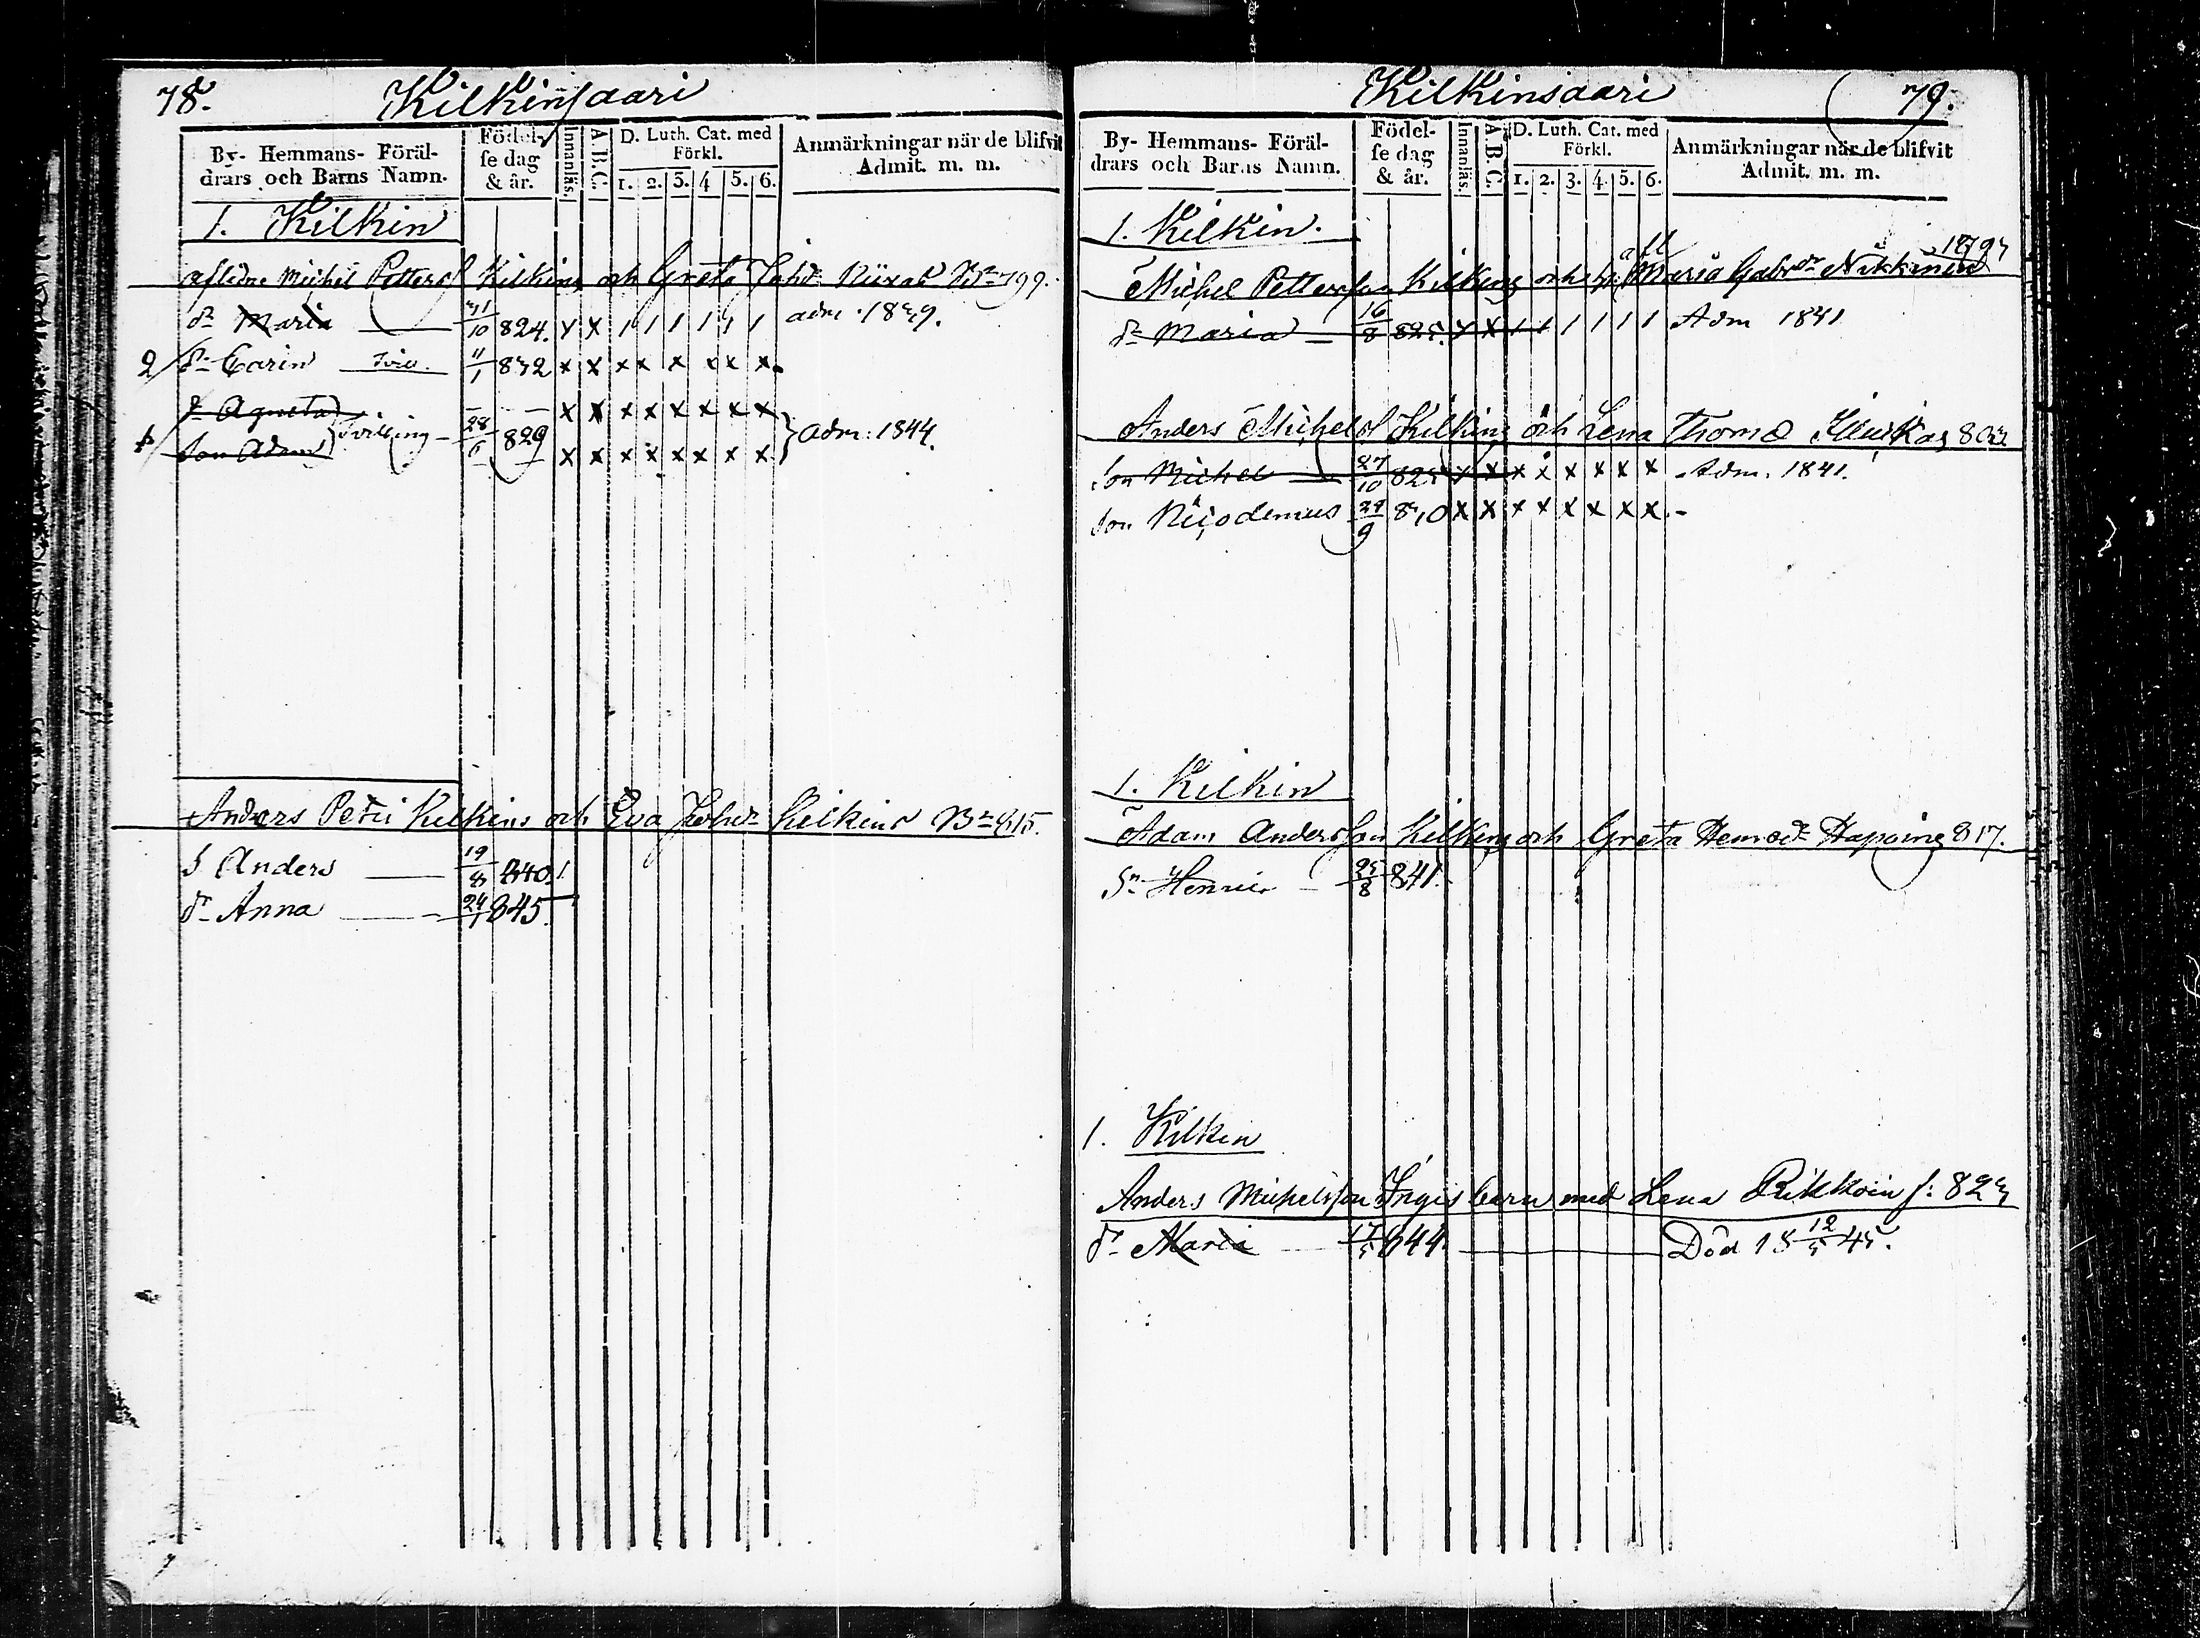 78. Kilkinsaari
By- Hemmans- Föräl-
drars och Barns Namn.
Födel-
se dag
& år.
Innanläs.
A.B.C.
D. Luth. Cat. med
Förkl.
1. 2. 3. 4 5. 6.
Anmärkningar när de blifvit
Admit. m. m.
1. Kilkin
aflidne Michel Petters Kilkins och Greta 799.
dr Maria 31/10 824. x x 1 1 1 1 1 1 adm. 1839.
2/ dr Carin Tvill. 11/1 832 x x x x x x x x
dr Agneta — — x x x x x x x x
Son Adam Tvilling 28/6 829 x x x x x x x x adm: 1844.
Anders Petri Kilkins och Eva Kilkin 815.
S Anders 19/8 840. 1
dr Anna 24/1 845.
Kilkinsaari 79.
By- Hemmans- Föräl-
drars och Barns Namn.
Födel-
se dag
& år.
Innanläs.
A.B.C.
D. Luth. Cat. med
Förkl.
1. 2. 3. 4. 5. 6.
Anmärkningar när de blifvit
Admit. m. m.
1. Kilkin.
Michel Pettersson Kilking och Maria Gabr dr 1793
dr Maria 16/8 825. x x 1 1 1 1 1 1 Adm 1841
Anders Michels Kilking och Lena Thoms 803
Son Michel 27/10 825 x x x x x x x x Adm. 1841.
Son Nicodemus 29/9 830 x x x x x x x x -
1. Kilkin
Adam Andersson Kilking och Greta Hapoing 817.
Sn Henric 25/8 841.
1. Kilkin
Anders Michelsson barn med Lena Rikkoin f: 823
dr Maria 17/5 844. Död 18 12/5 45.